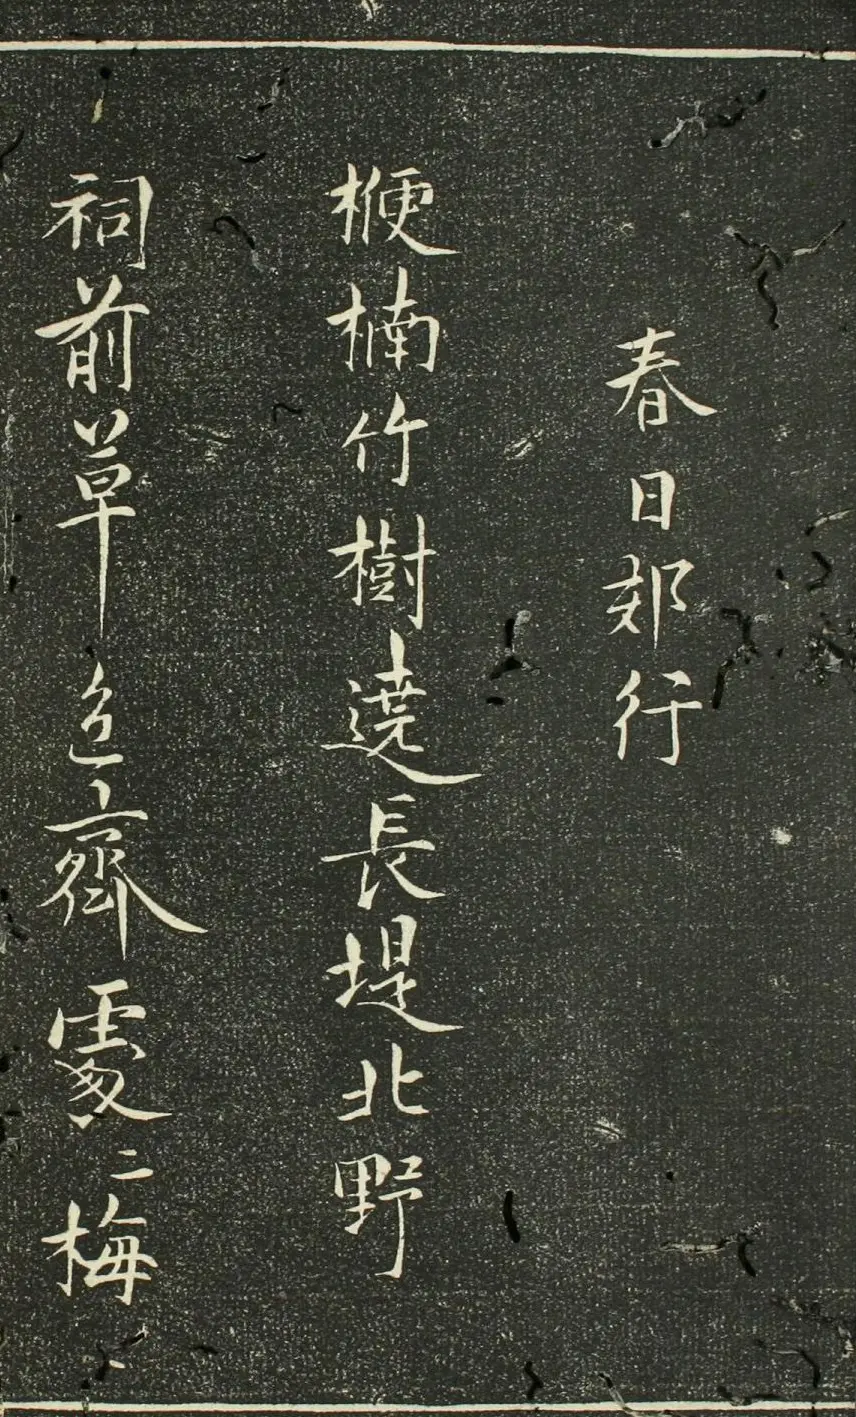 春日郊行
楩楠竹樹遶長堤北野
祠前草色齊處〻梅